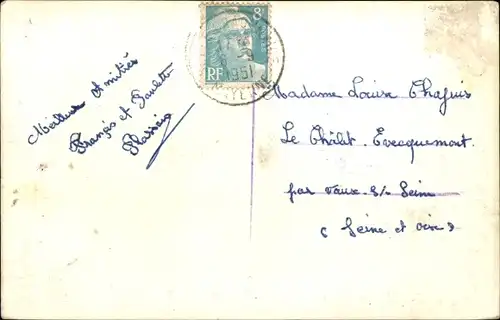 Meilleures Amitiés
François et Paulette
8F
RF
1951
Madame Louise Chapuis
Le Châlet Evecquemont
par Vaux s/s Seine
(Seine et Oise)